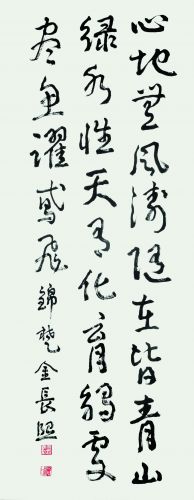 心地無風濤隨在皆青山
綠水性天有化育觸處
盡魚躍鳶飛 錦楚金長熙